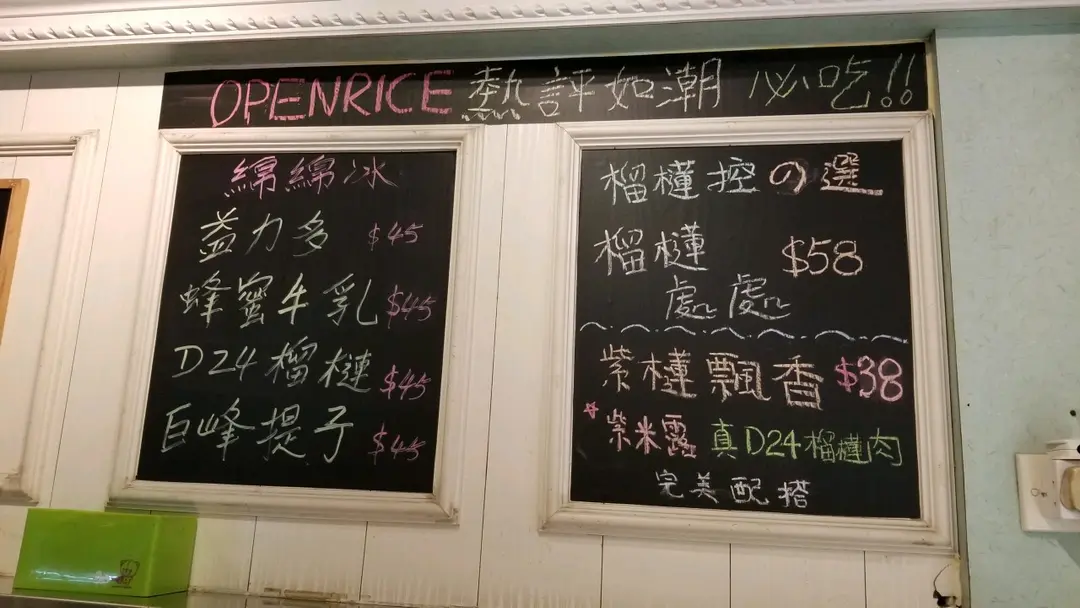 OPENRICE 熱評如潮 必吃!!
綿綿冰
益力多 $45
蜂蜜牛乳 $45
D24榴槤 $45
巨峰提子 $45
榴槤控の選
榴槤 $58
處處
紫槤飄香 $38
紫米露 真D24榴槤肉
完美配搭